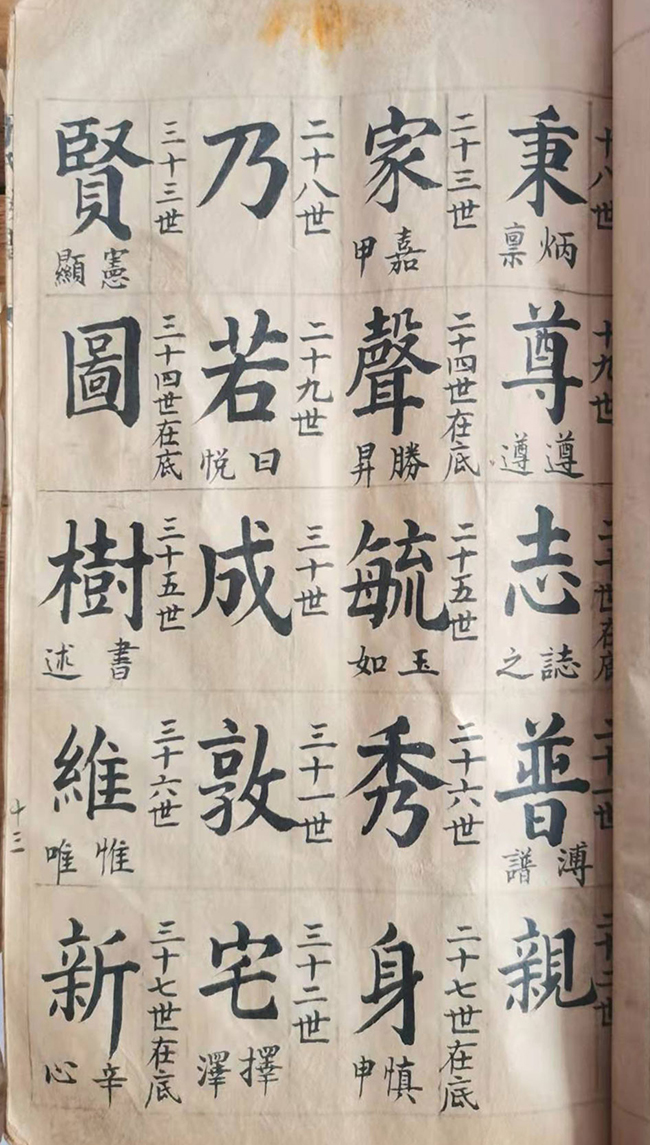 十八世
秉
炳 稟
十九世
尊
遵 遵
二十世在底
志
誌 之
二十一世
普
溥 譜
二十二世
親
二十三世
家
嘉 甲
二十四世在底
聲
勝 昇
二十五世
毓
玉 如
二十六世
秀
二十七世在底
身
慎 申
二十八世
乃
二十九世
若
日 悦
三十世
成
三十一世
敦
三十二世
宅
擇 澤
三十三世
賢
憲 顯
三十四世在底
圖
三十五世
樹
書 述
三十六世
維
惟 唯
三十七世在底
新
辛 心
十三